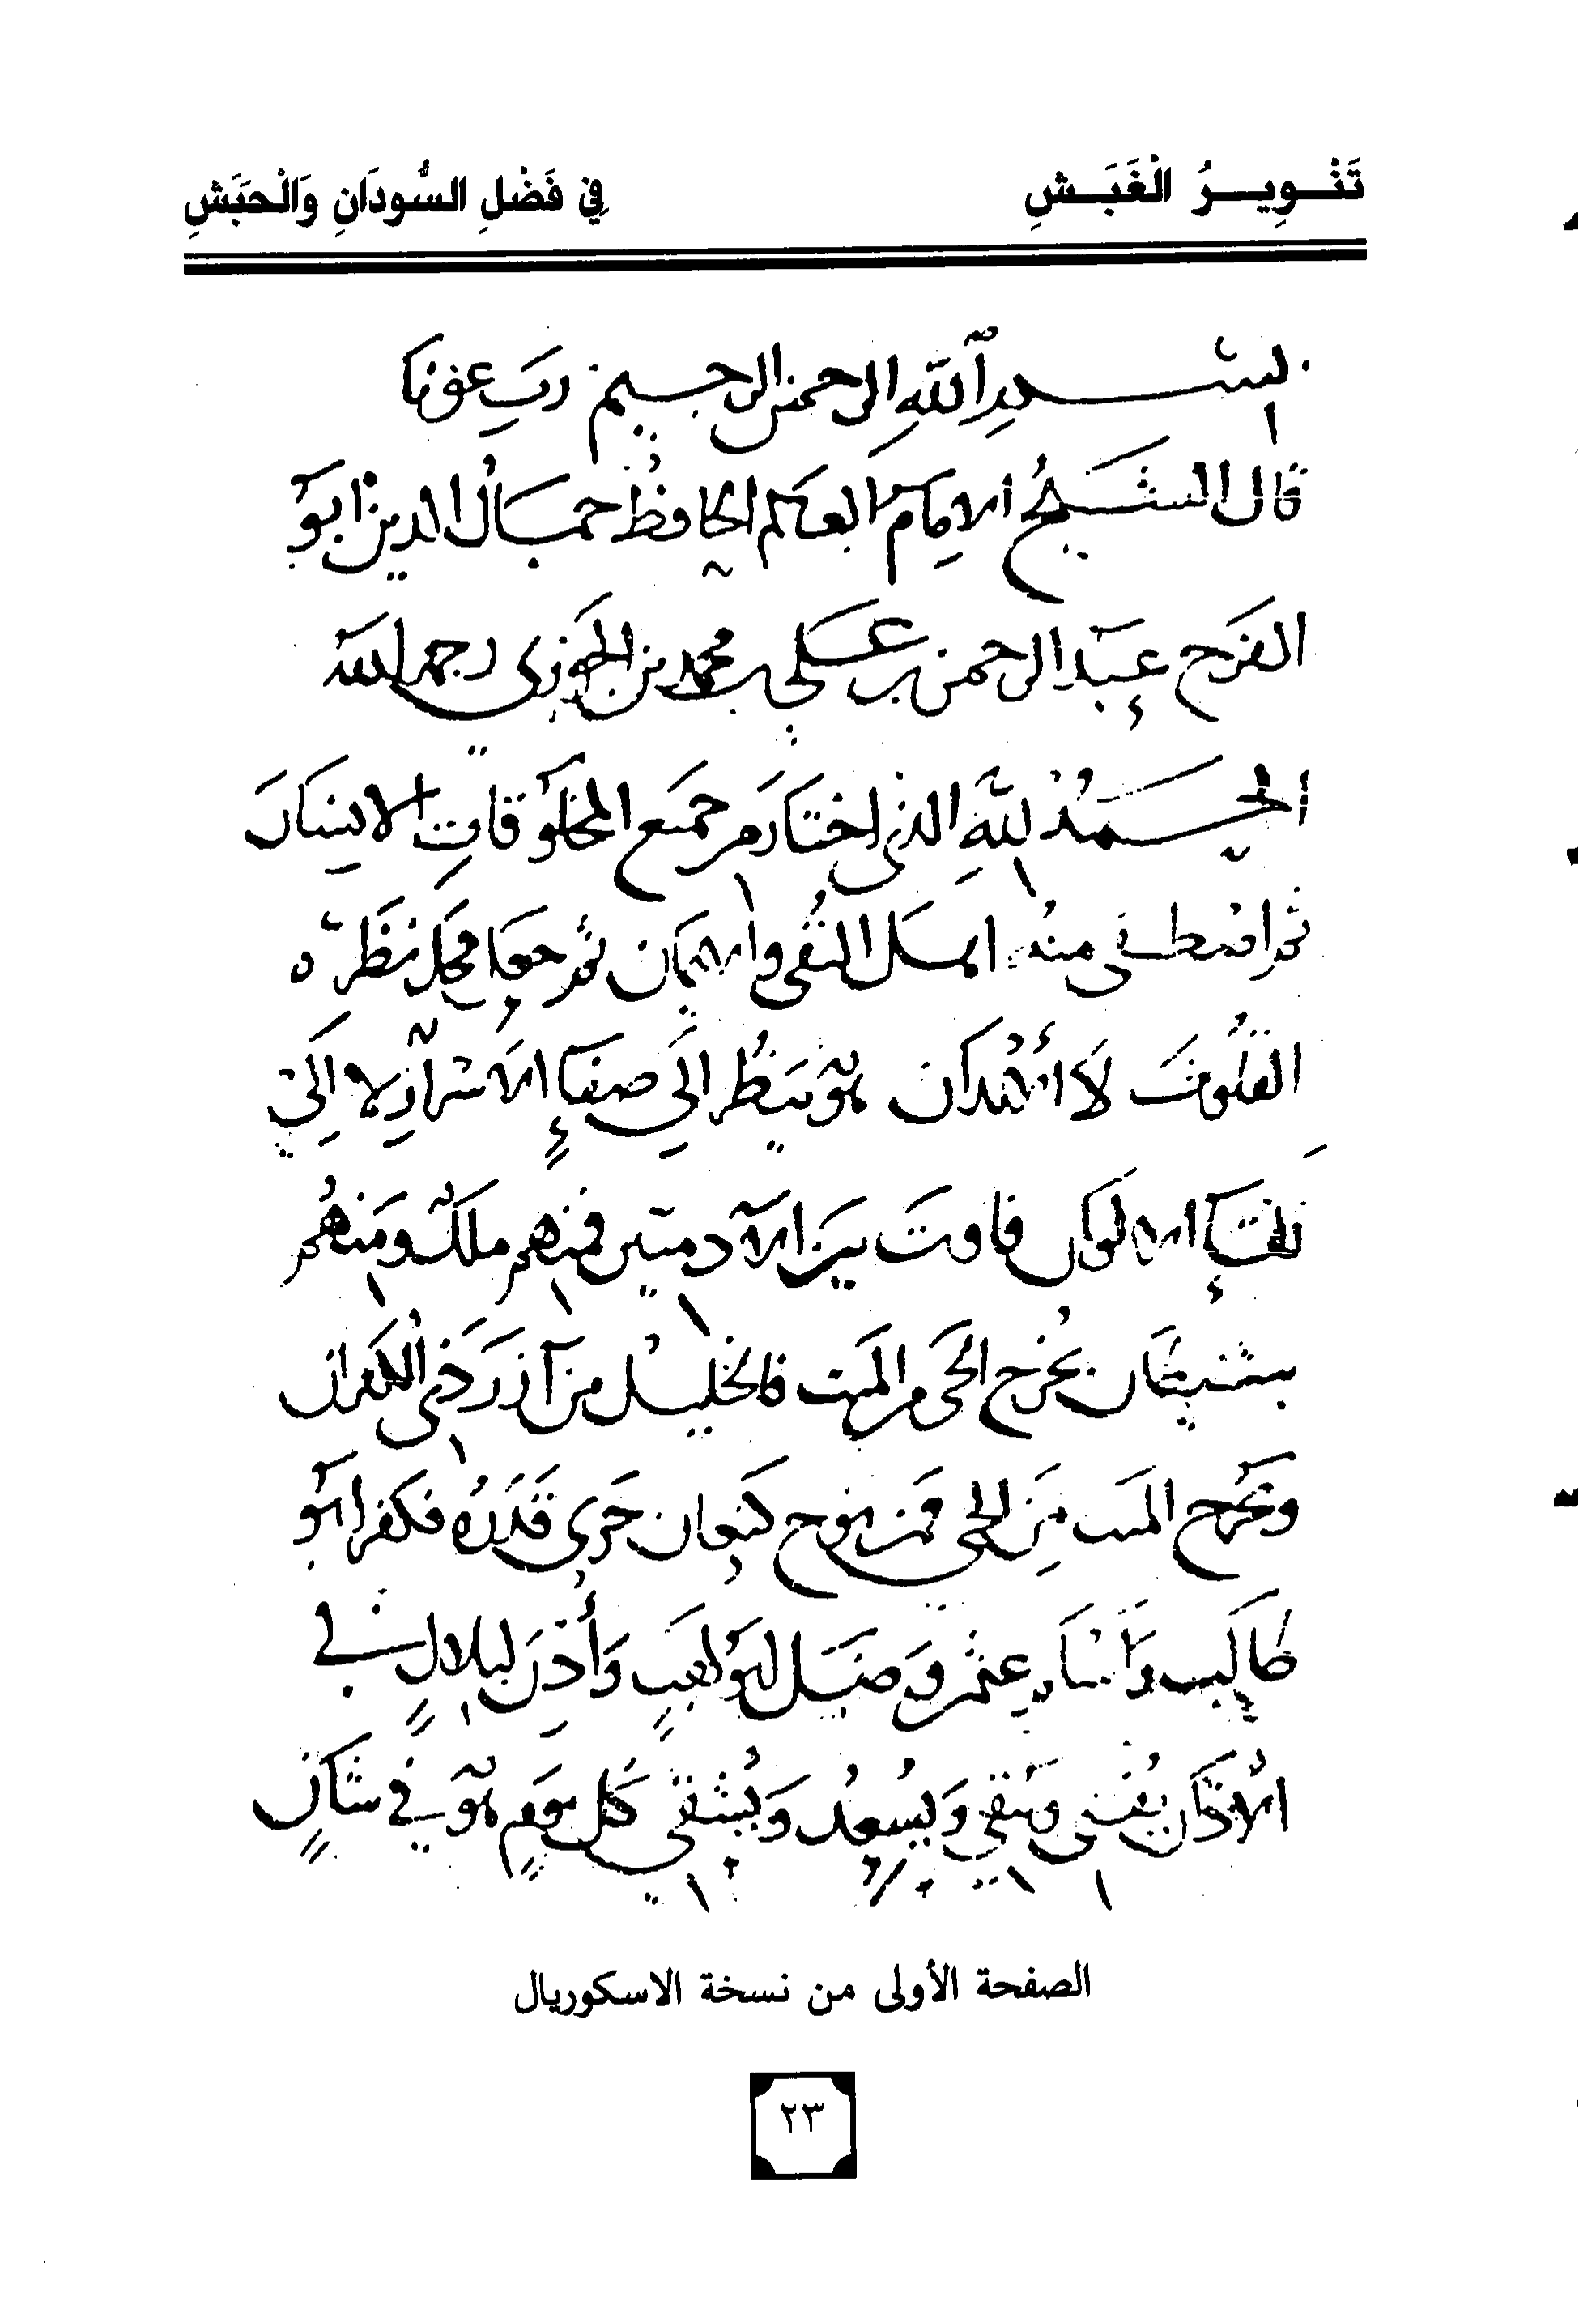 تَنْـوِيـرُ الْغَبَـشِ فِي فَضْلِ السُّودَانِ وَالْحَبَشِ
بسم الله الرحمن الرحيم رب عونك
قال الشيخ الإمام العالم الحافظ جمال الدين أبو
الفرج عبد الرحمن بن علي بن محمد بن الجوزي رحمه الله
الحمد لله الذي اختار من جميع المخلوقات الانسان
ثم اصطفى منه أهل التقى والايمان ثم جعل محل نظره
القلوب لا الأبدان فهو ينظر إلى صفاء الأسرار لا إلى
نقاء الالوان فاوت بين الآدميين فمنهم ملك ومنهم
شيطان يخرج الحي من الميت فالخليل من آزر ذي الكفران
ويخرج الميت من الحي فمن نوح كنعان جرى قدره فكفر أبو
طالب وأسلم عمر وضل أبو لهب وأذن لبلال في
الأذان يفني ويبقي ويسعد ويشقي كل يوم هو في شان
الصفحة الأولى من نسخة الاسكوريال
٢٣